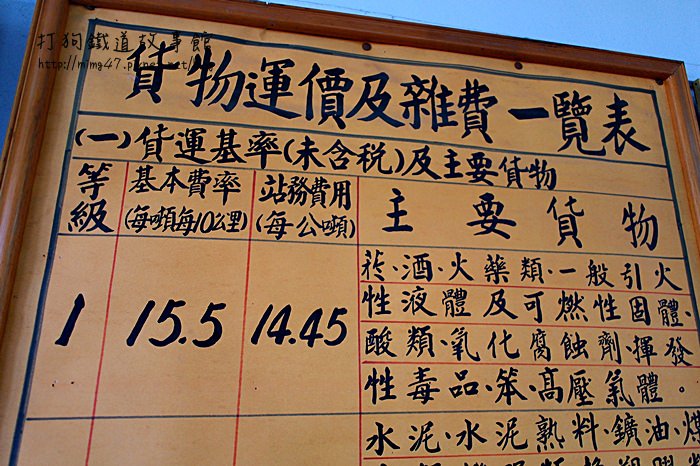 打狗鐵道故事館
貨物運價及雜費一覽表
(一)貨運基率(未含稅)及主要貨物
等級
基本費率
(每噸每10公里)
站務費用
(每公噸)
主要貨物
1
15.5
14.45
菸、酒、火藥類、一般引火
性液體及可燃性固體
酸類、氧化腐蝕劑、揮發
性毒品、笨、高壓氣體。
水泥、水泥熟料、鑛油、煤